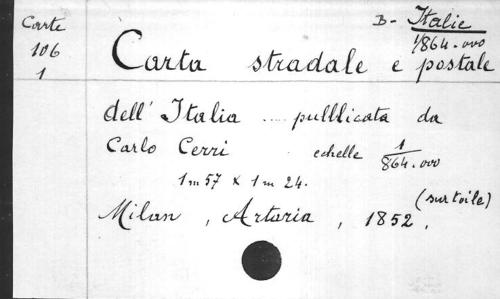 Carte
106
1
B- Italie
1/864.000
Carta stradale e postale
dell' Italia .... pulllicata da
Carlo Cerri echelle 1/864.000
1m57 x 1m 24.
(sur toile)
Milan, Artaria, 1852.